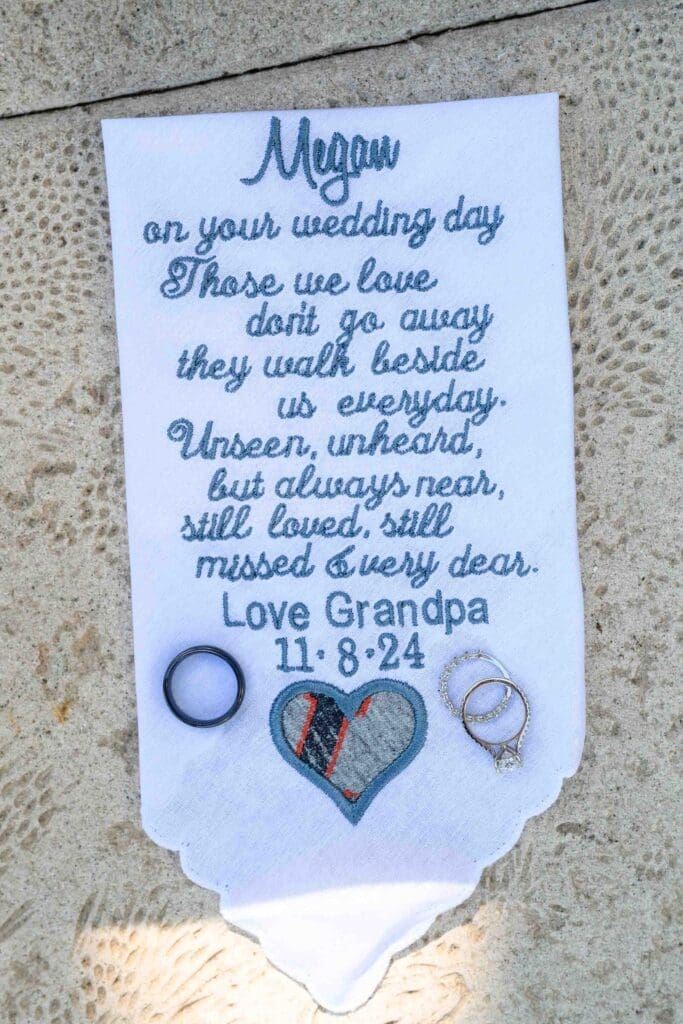 Megan
on your wedding day
Those we love
don't go away
they walk beside
us everyday.
Unseen, unheard,
but always near,
still loved, still
missed & very dear.
Love Grandpa
11·8·24